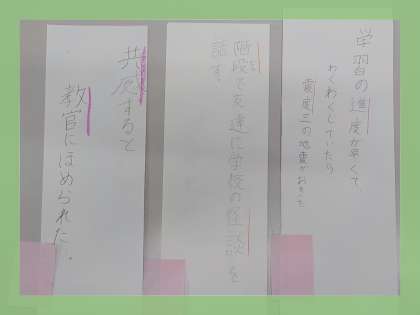 学習の進度が早くて、
わくわくしていたら
震度三の地震がおきた
階段で友達に学校の怪談を
話す。
共感すると
教官にほめられた。